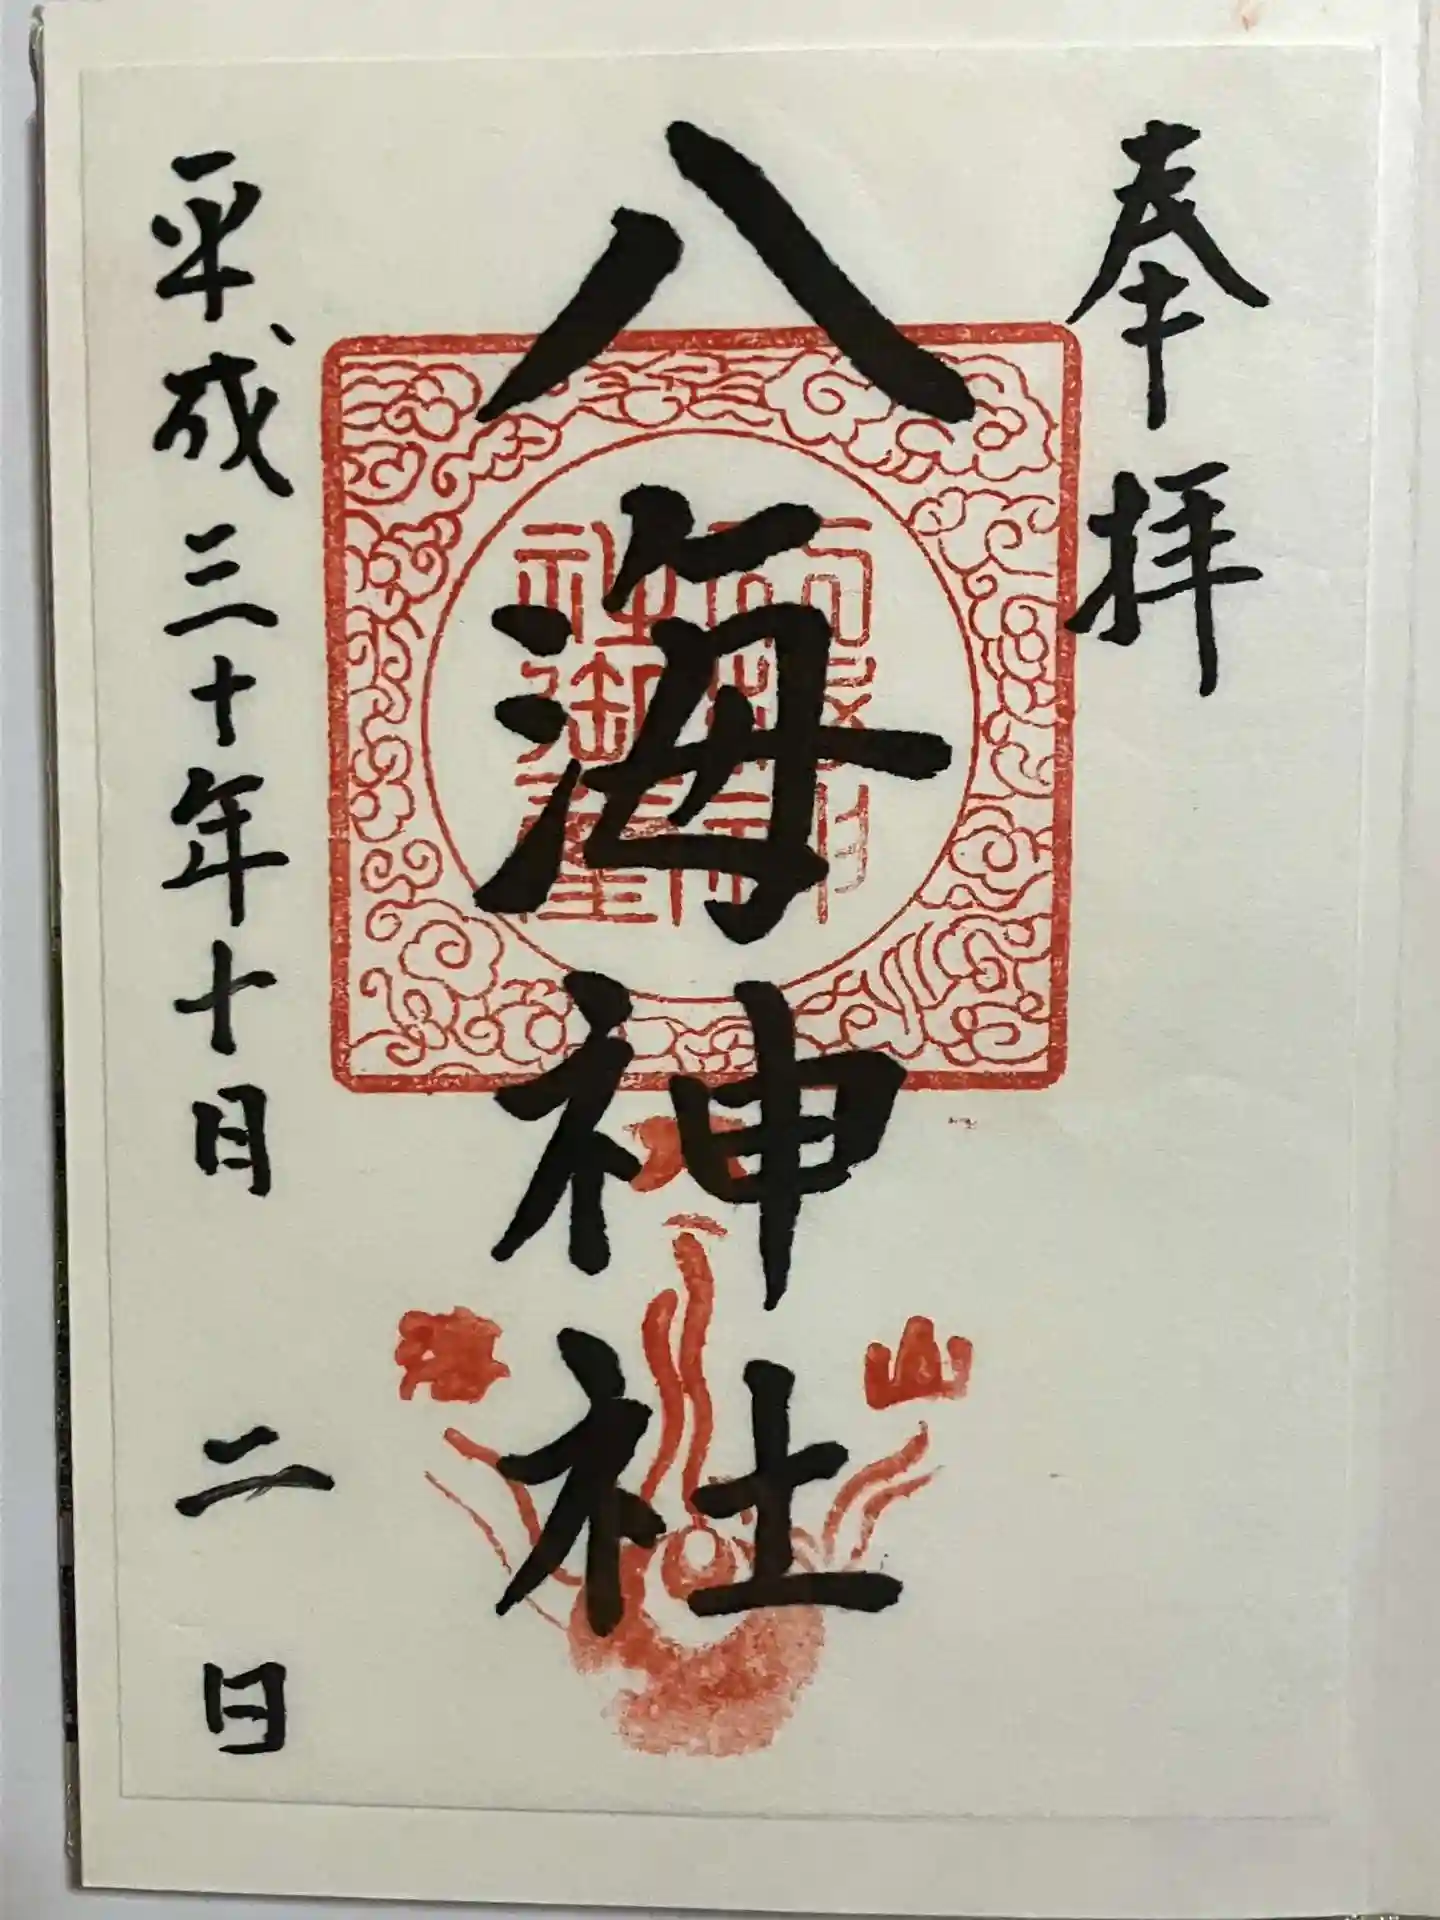 奉拝
八海神社
平成三十年十月二日
山